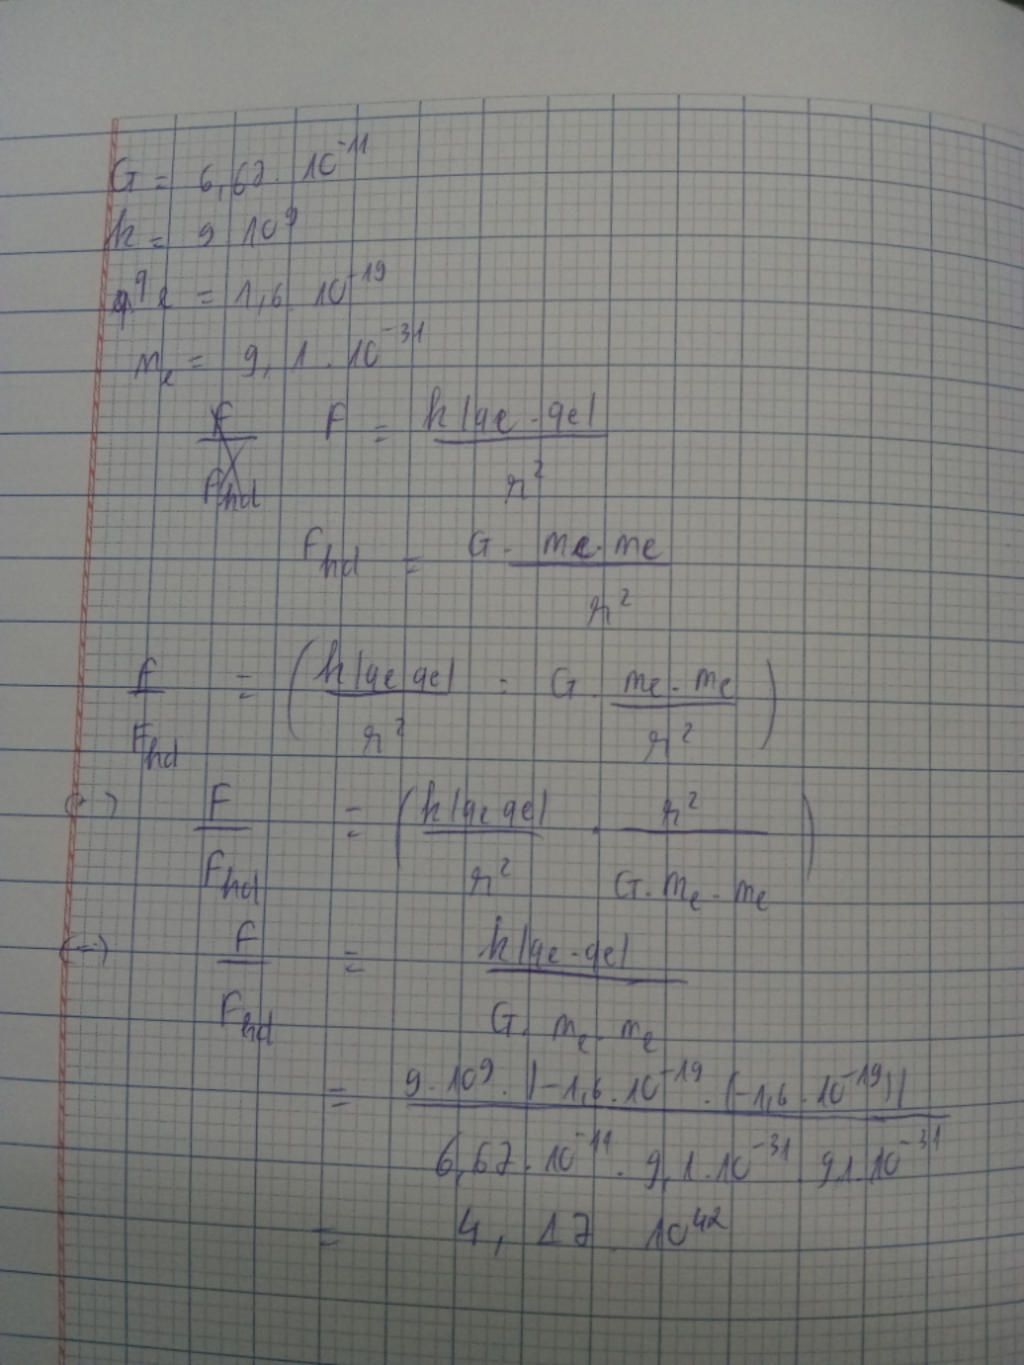 G = 6,67 . 10⁻¹¹
k = 9 10⁹
qe = 1,6 10⁻¹⁹
me = 9,1 . 10⁻³¹
F = k|qe . qe| / r²
Fhd = G . me . me / r²
F / Fhd = ( k|qe qe| / r² : G . me . me / r² )
(=) F / Fhd = ( k|qe qe| / r² . r² / G . me . me )
(=) F / Fhd = k|qe . qe| / G . me . me
= 9 . 10⁹ . |-1,6 . 10⁻¹⁹ . (-1,6 . 10⁻¹⁹)| / 6,67 . 10⁻¹¹ . 9,1 . 10⁻³¹ . 9,1 . 10⁻³¹
= 4,17 . 10⁴²